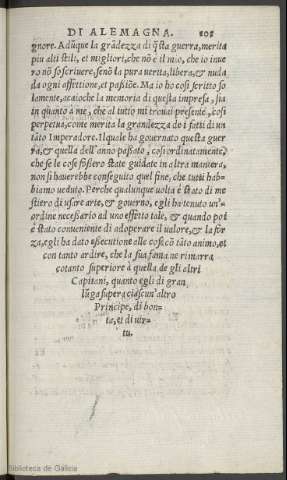 DI ALEMAGNA. 101
gnore. Adũque la grãdezza di q̃sta guerra, merita
piu alti stili, et migliori, che nõ è il mio, che io inue
ro nõ so scriuere, senõ la pura uerita, libera, & nuda
da ogni affettione, et passiõe. Ma io ho cosi scritto so
lamente, acaioche la memoria di questa impresa, sia
in quanto à me, che al tutto mi trouai presente, cosi
perpetua, come merita la grandezza de i fatti di un
tãto Imperadore. Il quale ha gouernato questa guer
ra, & quella dell'anno passato, cosi ordinatamente,
che se le cose fossero state guidate in altra maniera,
non si hauerebbe conseguito quel fine, che tutti hab-
biamo ueduto. Perche qualunque uolta è stato di me
stiero di usare arte, & gouerno, egli ha tenuto un'
ordine necessario ad uno effetto tale, & quando poi
è stato conueniente di adoperare il ualore, & la for
za, egli ha dato essecutione alle cose cõ tãto animo, et
con tanto ardire, che la sua fama ne rimarra
cotanto superiore à quella de gli altri
Capitani, quanto egli di gran
lũga supera ciascun'altro
Principe, di bon-
ta, et di uir-
tu.
Biblioteca de Galicia